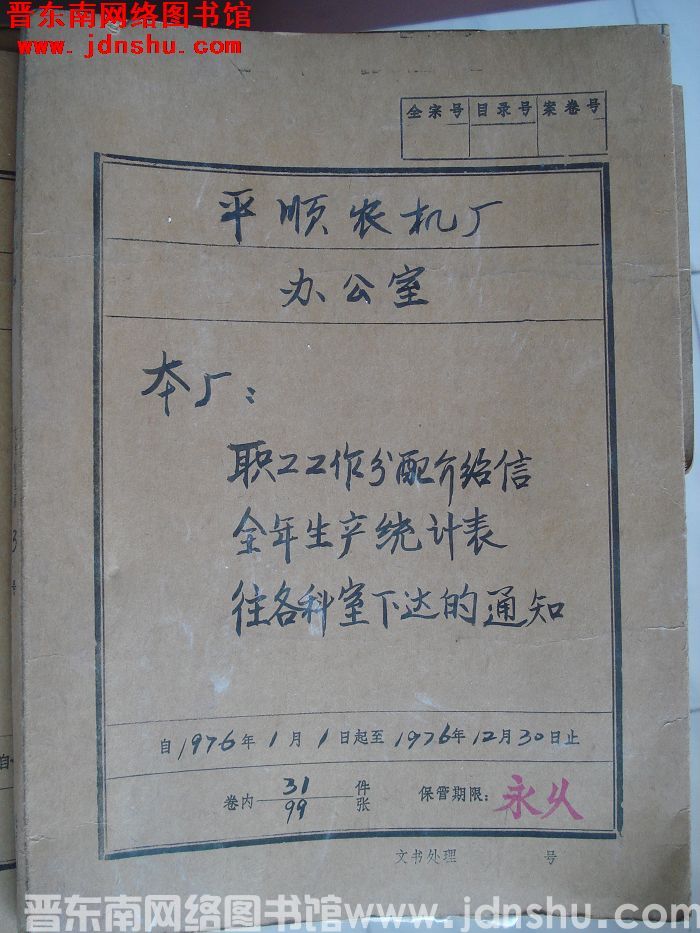 晋东南网络图书馆
www.jdnshu.com
全宗号 目录号 案卷号
平顺农机厂
办公室
本厂：
职工工作分配介绍信
全年生产统计表
往各科室下达的通知
自1976年1月1日起至1976年12月30日止
卷内 31 件 保管期限：永久
99 张
文书处理 号
晋东南网络图书馆www.jdnshu.com